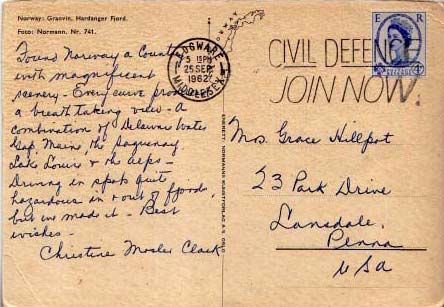 Norway: Granvin, Hardanger Fjord.
Foto: Normann. Nr. 741.
Found Norway a Country
with magnificent
scenery - Every curve provided
a breath taking view - A
combination of Delaware Water
Gap, Maine the Saguenay
Lake Louise & the alps -
Driving in spots quite
hazardous in & out of fjords
but we made it - Best
wishes -
Christine Mosler Clark
NORWAY
ENERET NORMANNS KUNSTFORLAG A/S OSLO
EDGWARE
5 15PM
25 SEP
1962
MIDDLESEX
CIVIL DEFENCE
JOIN NOW.
E R
Mrs. Grace Hillpot
23 Park Drive
Lansdale,
Penna
USA